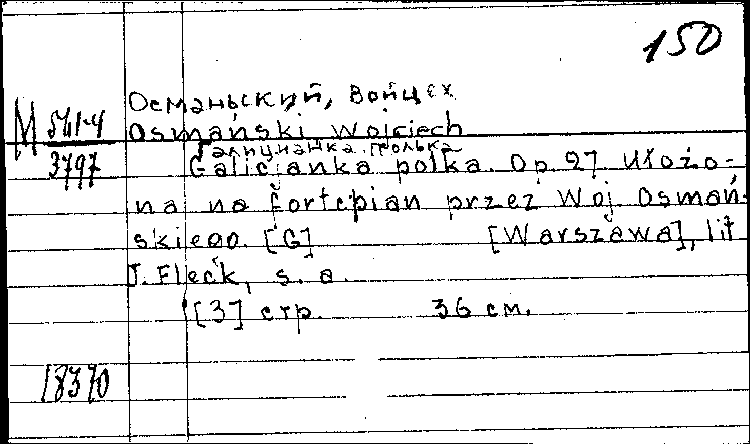 150
Османьский, Войцех
М 541-4
3797
Osmański, Wojciech
Галицианка полька.
Galicianka polka. Op. 27 Ułożo-
na na fortepian przez Woj. Osmań-
skiego. [G] [Warszawa], lit
J. Fleck, s. a.
[3] стр. 36 см.
18370